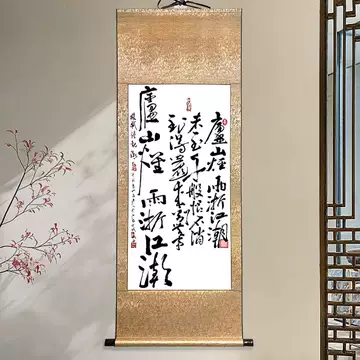 廬山煙雨浙江潮
未至千般恨不消
到得還來別無事
廬山煙雨浙江潮